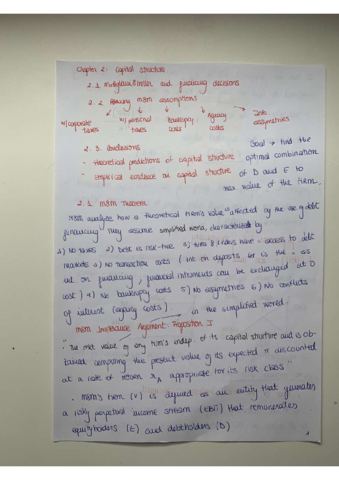 Chapter 2: Capital structure
2.1 Modigliani & Miller and financing decisions
2.2 Relaxing M&M assumptions
w/ corporate taxes
w/ personal taxes
Bankruptcy costs
Agency costs
Info assymetries
2.3. Conclusions
- Theoretical predictions of capital structure
- Empirical evidence on capital structure
Goal → find the
optimal combination
of D and E to
max value of the firm.
2.1 M&M Theorem
M&M analyze how a theoretical firm's value is affected by the use of debt
financing. They assume simplified world, characterized by:
1) No taxes 2) Debt is risk-free 3) firms & indivs have = access to debt
markets 4) No transaction costs ( int on deposits is the = as
int on financing, financial instruments can be exchanged at 0
cost ) 4) No bankruptcy costs 5) No assymetries 6) No conflicts
of interest (agency costs)
in the simplified world.
M&M Irrelevance Argument: Proposition I
"The mkt value of any firm's indep. of its capital structure and is ob-
tained computing the present value of its expected π discounted
at a rate of return appropriate for its risk class"
. M&M's firm (V) is defined as an entity that generates
a risky perpetual income stream (EBIT) that remunerates
equityholders (E) and debtholders (D)
1